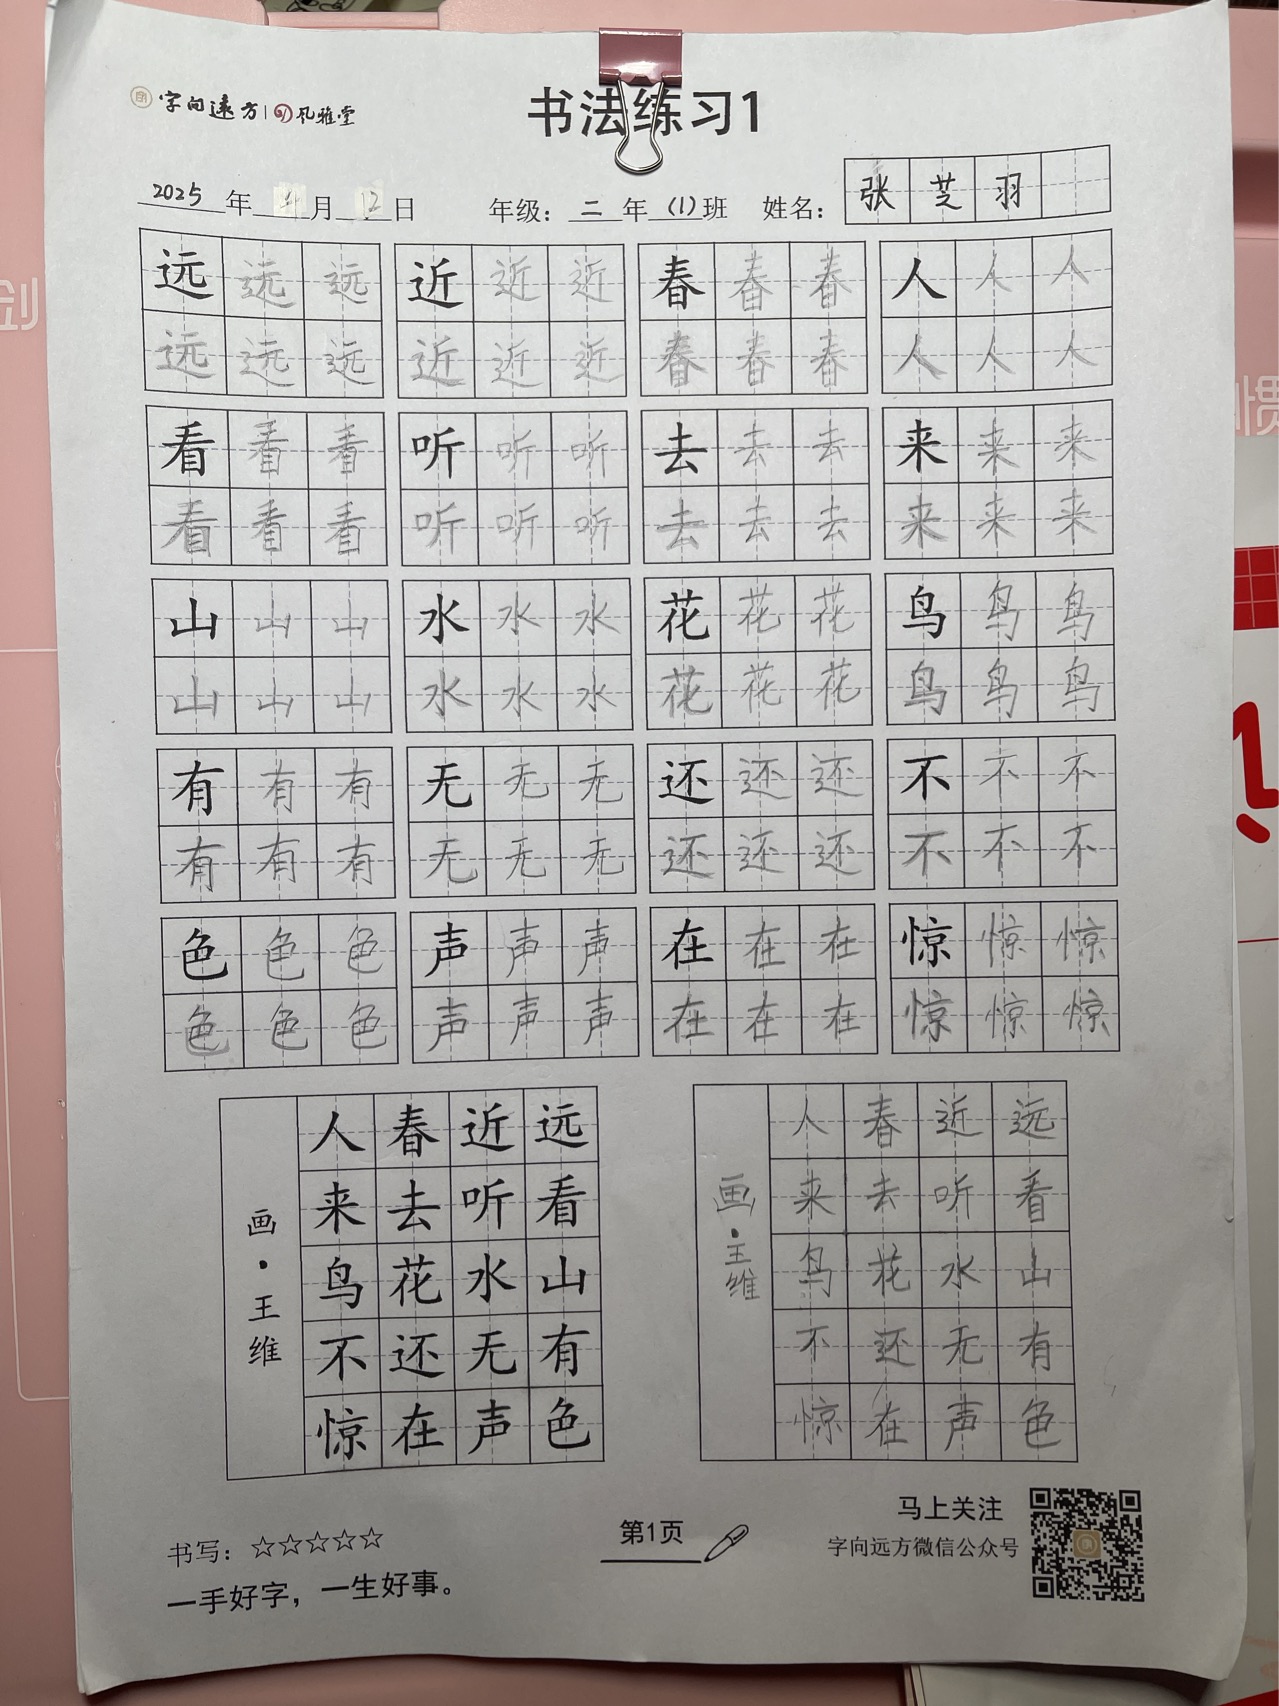 字向远方 | 风雅堂
书法练习1
2025年4月12日 年级：二年(1)班 姓名：张芝羽
远远远 近近近 春春春 人人人
远远远 近近近 春春春 人人人
看看看 听听听 去去去 来来来
看看看 听听听 去去去 来来来
山山山 水水水 花花花 鸟鸟鸟
山山山 水水水 花花花 鸟鸟鸟
有有有 无无无 还还还 不不不
有有有 无无无 还还还 不不不
色色色 声声声 在在在 惊惊惊
色色色 声声声 在在在 惊惊惊
远看山有色
近听水无声
春去花还在
人来鸟不惊
画·王维
远看山有色
近听水无声
春去花还在
人来鸟不惊
画·王维
书写：☆☆☆☆☆
一手好字，一生好事。
第1页
马上关注
字向远方微信公众号